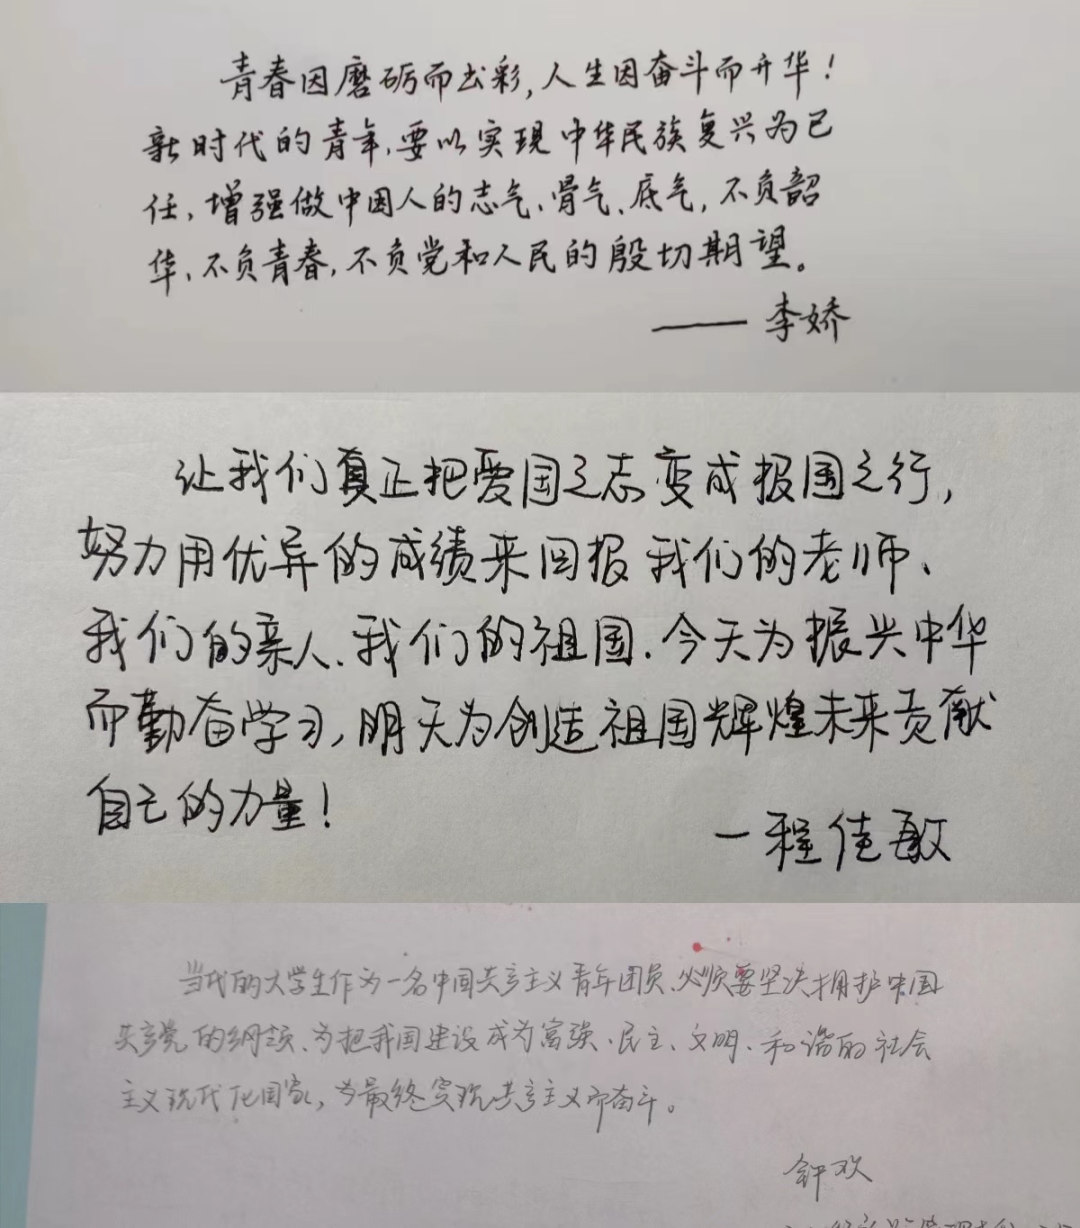 青春因磨砺而出彩,人生因奋斗而升华!
新时代的青年,要以实现中华民族复兴为己
任,增强做中国人的志气、骨气、底气,不负韶
华,不负青春,不负党和人民的殷切期望。
—— 李娇
让我们真正把爱国之志变成报国之行,
努力用优异的成绩来回报我们的老师、
我们的亲人、我们的祖国.今天为振兴中华
而勤奋学习,明天为创造祖国辉煌未来贡献
自己的力量!
—程佳敏
当代的大学生作为一名中国共产主义青年团员、必须要坚决拥护中国
共产党的纲领、为把我国建设成为富强、民主、文明、和谐的社会
主义现代化国家,为最终实现共产主义而奋斗。
欢